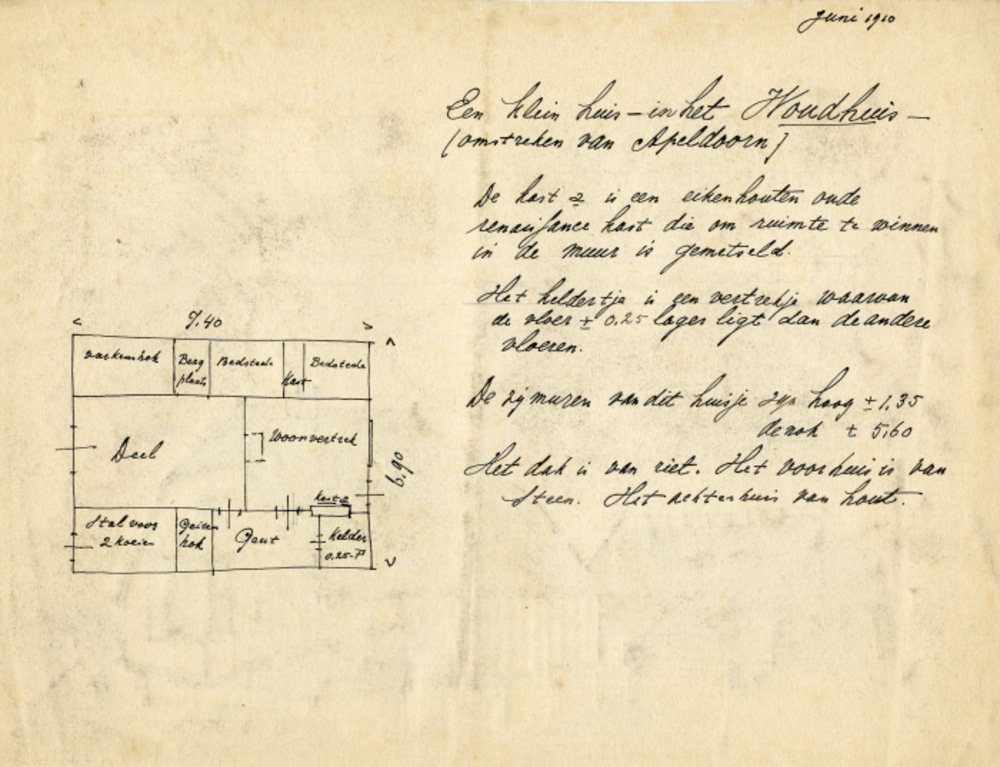 Juni 1910
Een klein huis – in het Woudhuis –
(omstreken van Apeldoorn)
De kast a is een eikenhouten oude
renaissance kast die om ruimte te winnen
in de muur is gemetseld.
Het keldertje is een vertrekje waarvan
de vloer ± 0.25 lager ligt dan de andere
vloeren.
De zijmuren van dit huisje zijn hoog ± 1.35
de nok ± 5.60
Het dak is van riet. Het voorhuis is van
steen. Het achterhuis van hout.
7.40
varkenshok
Berg
plaats
Bedstede
Kast
Bedstede
Deel
Woonvertrek
6.90
kast a
Stal voor
2 koeien
Geiten
hok
Geut
Kelder
0.25-P